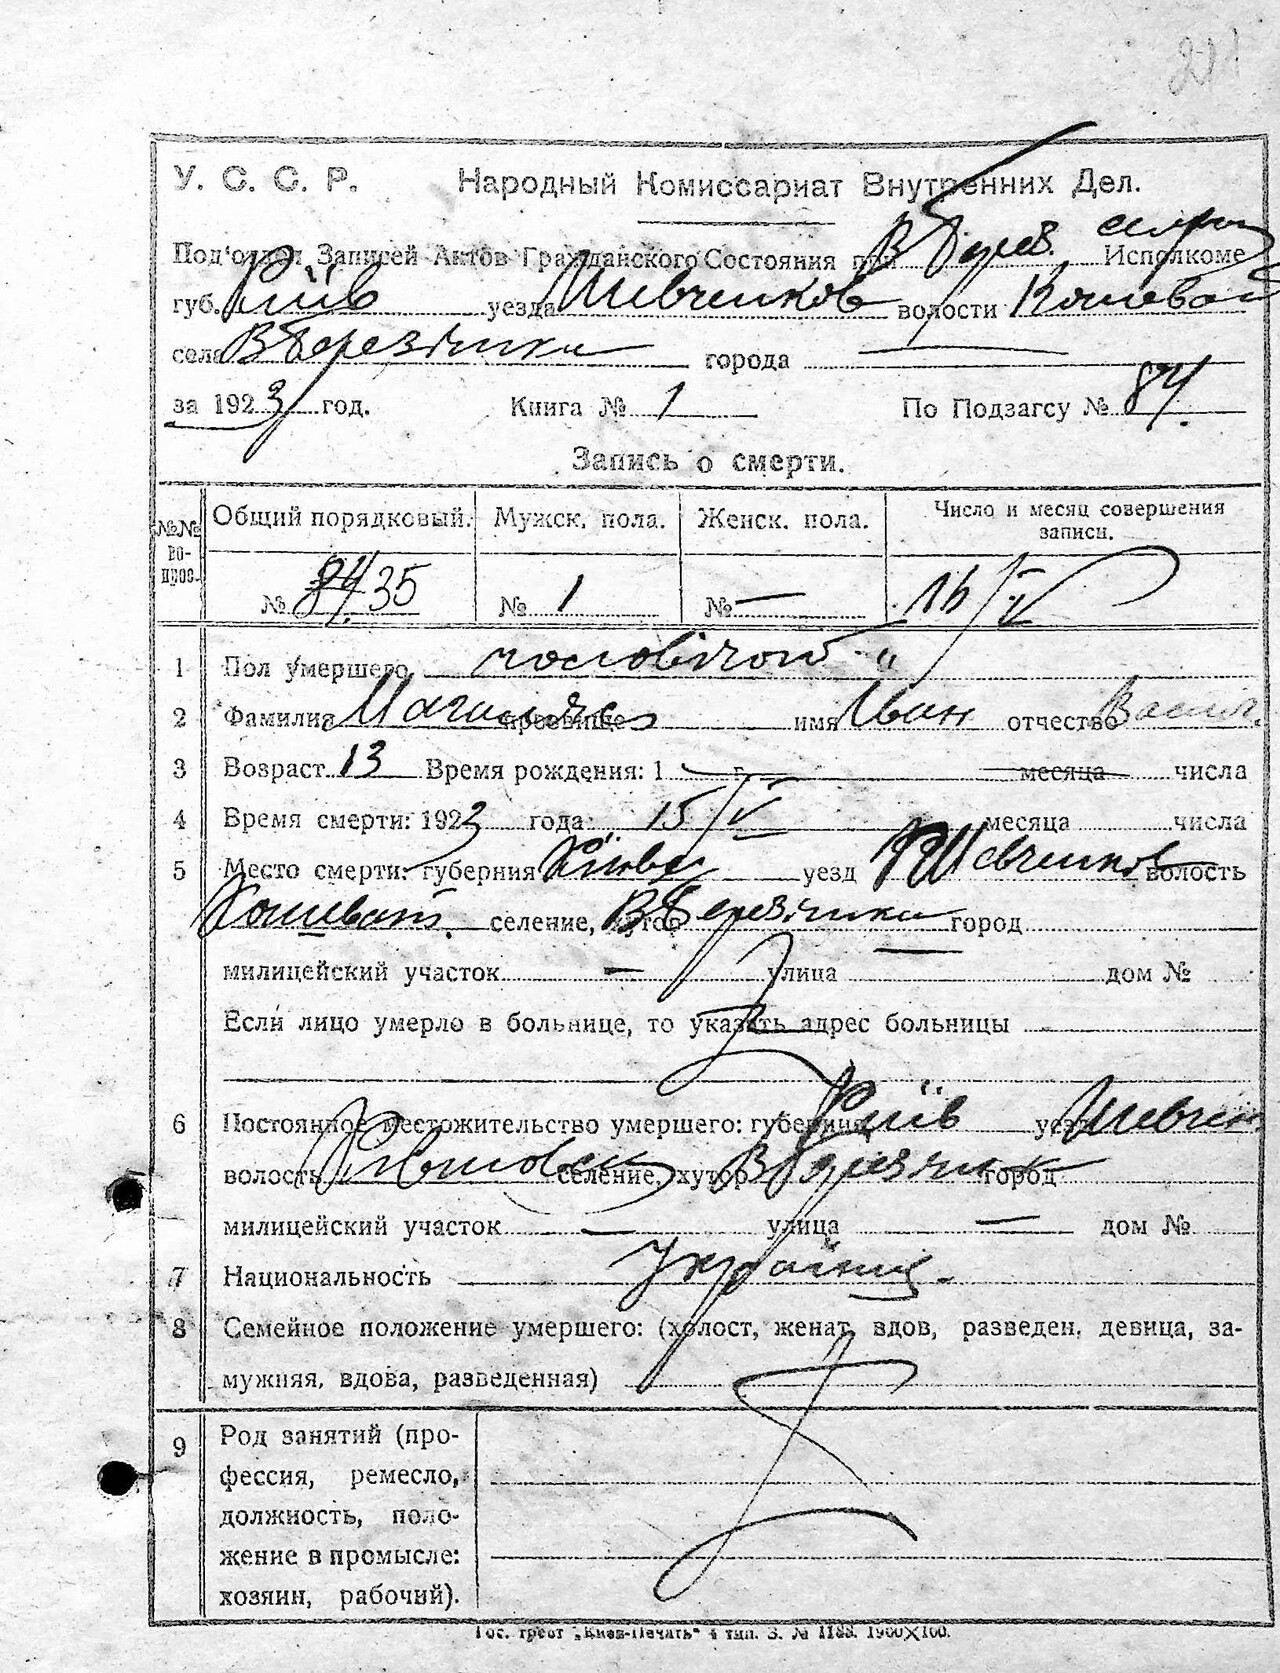 У. С. С. Р. Народный Комиссариат Внутренних Дел.
Под'отдел Записей Актов Гражданского Состояния при В Берез. Исполкоме
губ. Київ уезда Шевченков волости Кошеват
села В Березянка города
за 1923 год. Книга № 1 По Подзагсу № 84.
Запись о смерти.
№№ вопрос. Общий порядковый. Мужск. пола. Женск. пола. Число и месяц совершения записи.
№ 84 35 № 1 № — 16/V
1 Пол умершего чоловічой
2 Фамилия прозвище имя Иван отчество Васил.
3 Возраст 13 Время рождения: 1 — г. месяца числа
4 Время смерти: 1923 года 15/V месяца числа
5 Место смерти: губерния уезд Шевченков волость
Кошеват. селение, хутор В Березянка город —
милицейский участок — улица дом №
Если лицо умерло в больнице, то указать адрес больницы
6 Постоянное местожительство умершего: губерния Київ уезд Шевчен
волость селение, хутор город
милицейский участок — улица — дом №
7 Национальность українец.
8 Семейное положение умершего: (холост, женат, вдов, разведен, девица, за-
мужняя, вдова, разведенная)
9 Род занятий (про-
фессия, ремесло,
должность, поло-
жение в промысле:
хозяин, рабочий).
Гос. трест „Киев-Печать" 4 тип. З. № 1188. 1900×100.